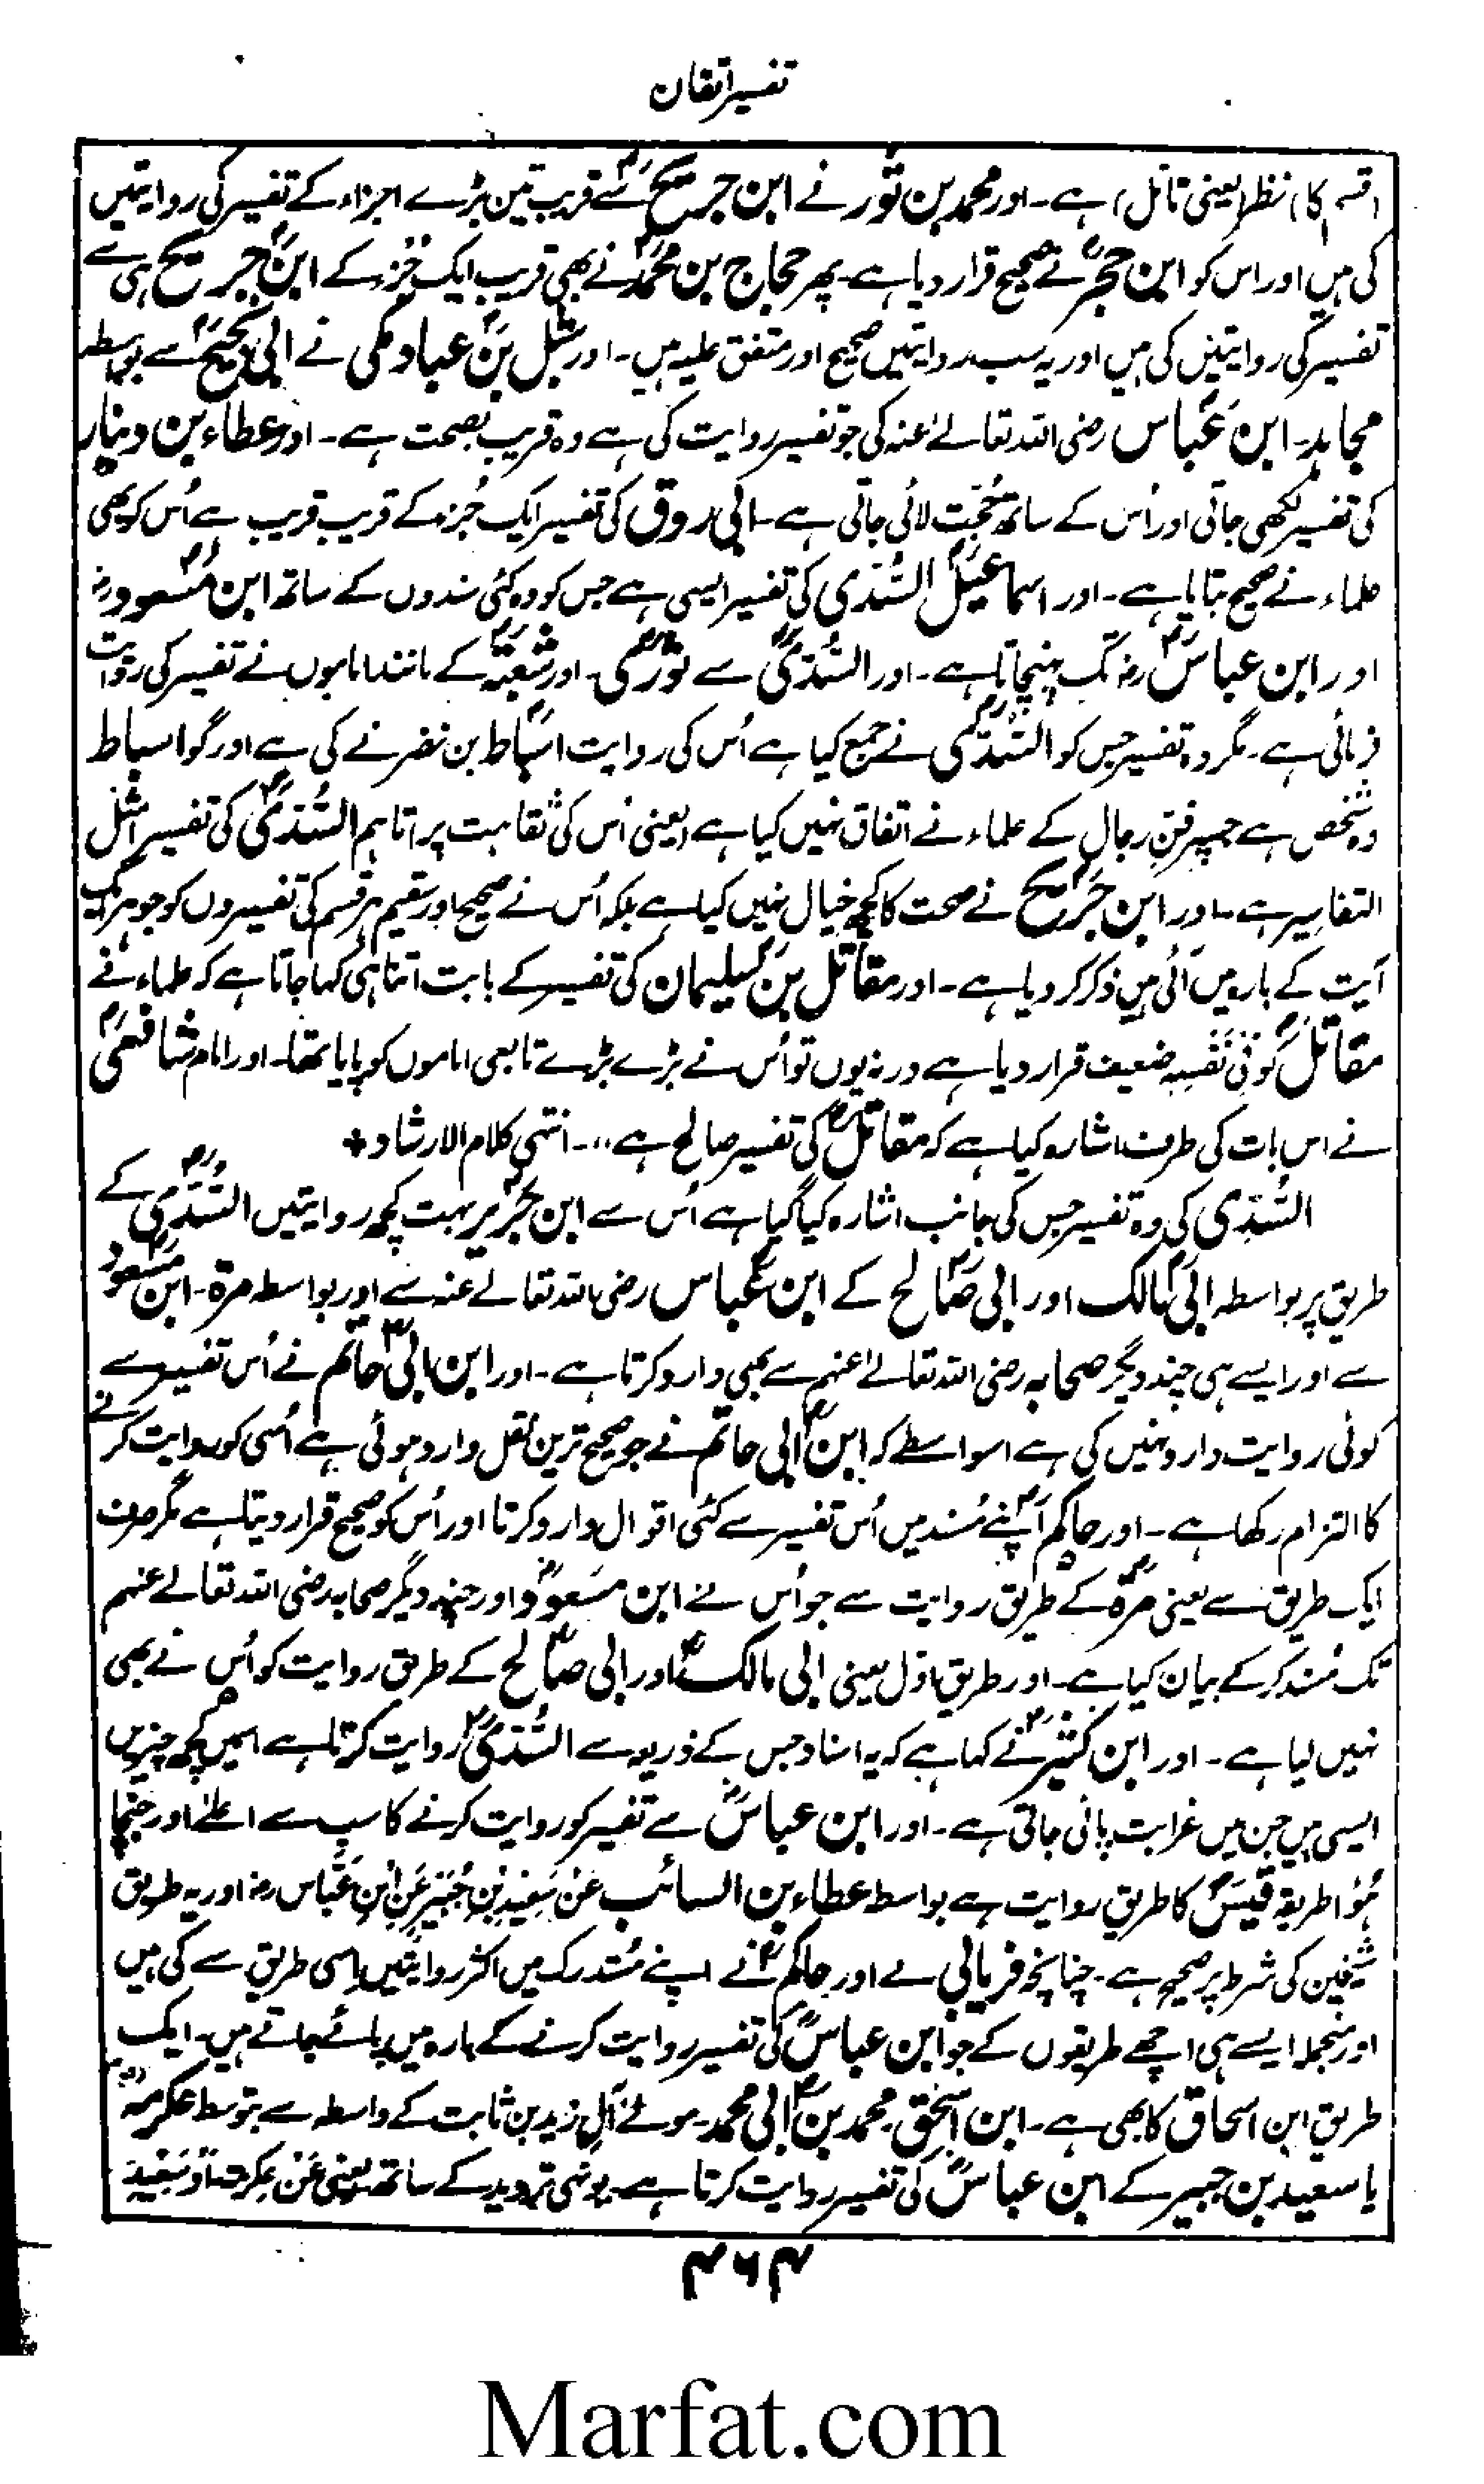 تفسیر اتقان
(قسم کا) نظر (یعنی تامل) ہے۔ اور محمد بن ثور نے ابن جریجؒ سے قریب تین بڑے اجزاء کے تفسیر کی روایتیں
کی ہیں اور اس کو ابن حجرؒ نے صحیح قرار دیا ہے۔ پھر حجاج بن محمدؒ نے بھی قریب ایک جُزء کے ابن جریجؒ ہی سے
تفسیر کی روایتیں کی ہیں اور یہ سب روایتیں صحیح اور متفق علیہ ہیں۔ اور شبل بن عباد مکی نے ابی نجیحؒ سے بوسطہ
مجاہد۔ ابن عباس رضی اللہ تعالےٰ عنہ کی جو تفسیر روایت کی ہے وہ قریب بصحت ہے۔ اور عطاء بن دینار
کی تفسیر لکھی جاتی اور اُس کے ساتھ حُجّت لائی جاتی ہے۔ ابی روق کی تفسیر ایک جُزء کے قریب قریب ہے اُس کو بھی
علماء نے صحیح بتایا ہے۔ اور اسماعیلؒ السُّدّی کی تفسیر ایسی ہے جس کو وہ کئی سندوں کے ساتھ ابن مسعودؓ
اور ابن عباسؓ رضہ تک پہنچاتا ہے۔ اور السُّدّیؒ سے ثوریؒ۔ اور شعبہؒ کے مانند اماموں نے تفسیر کی روایت
فرمائی ہے۔ مگر وہ تفسیر جس کو السُّدّیؒ نے جمع کیا ہے اُس کی روایت اسباط بن نضر نے کی ہے اور گو اسباط
وہ شخص ہے جسپر فنِ رجال کے علماء نے اتفاق نہیں کیا ہے (یعنی اُس کی ثقاہت پر) تاہم السُّدّیؒ کی تفسیر امثل
التفاسیر ہے۔ اور ابن جریجؒ نے صحت کا کچھ خیال نہیں کیا ہے بلکہ اُس نے صحیح اور سقیم ہر قسم کی تفسیروں کو جو ہر ایک
آیت کے بارہ میں آئی ہیں ذکر کر دیا ہے۔ اور مقاتل بن سلیمان کی تفسیر کے بابت اتنا ہی کہا جاتا ہے کہ علماء نے
مقاتلؒ کو فی نَفسِہ ضعیف قرار دیا ہے ورنہ یوں تو اُس نے بڑے بڑے تابعی اماموں کو پایا تھا۔ اور امام شافعیؒ
نے اس بات کی طرف اشارہ کیا ہے کہ مقاتلؒ کی تفسیر صالح ہے،،۔ انتہی کلام الارشاد +
السُّدّی کی وہ تفسیر جس کی جانب اشارہ کیا گیا ہے اُس سے ابن جریرؒ بہت کچھ روایتیں السُّدّیؒ کے
طریق پر بواسطہ ابی مالک اور ابی صالح کے ابن عباس رضی اللہ تعالےٰ عنہ سے اور بواسطہ مرۃ۔ ابن مسعودؓ
سے اور ایسے ہی چند دیگر صحابہ رضی اللہ تعالےٰ عنہم سے بھی وارد کرتا ہے۔ اور ابن ابی حاتم نے اُس تفسیر سے
کوئی روایت وارد نہیں کی ہے اسواسطے کہ ابن ابی حاتم نے جو صحیح ترین نقل وارد ہوئی ہے اُسی کو روایت کرنے
کا التزام رکھا ہے۔ اور حاکمؒ اپنے مُسند میں اُس تفسیر سے کئی اقوال وارد کرتا اور اُس کو صحیح قرار دیتا ہے مگر صرف
ایک طریق سے یعنی مرّۃ کے طریق روایت سے جو اُس نے ابن مسعودؓ اور چند دیگر صحابہ رضی اللہ تعالےٰ عنہم
تک مُسند کر کے بیان کیا ہے۔ اور طریق اوّل یعنی ابی مالکؒ اور ابی صالح کے طریق روایت کو اُس نے بھی
نہیں لیا ہے۔ اور ابن کثیرؒ نے کہا ہے کہ یہ اسناد جس کے ذریعہ سے السُّدّیؒ روایت کرتا ہے اسمیں کچھ چیزیں
ایسی ہیں جن میں غرابت پائی جاتی ہے۔ اور ابن عباسؓ سے تفسیر کو روایت کرنے کا سب سے اعلےٰ اور جنچا
ہُوا طریقہ قیسؒ کا طریق روایت ہے بواسطہ عطاء بن السائب عَن سَعِیدِ بنِ جُبَیرٍ عَن ابنِ عَبَّاس رضہ اور یہ طریق
شیخین کی شرط پر صحیح ہے۔ چنانچہ فریابی نے اور حاکمؒ نے اپنے مُستدرک میں اکثر روایتیں اسی طریق سے کی ہیں
اور منجملہ ایسے ہی اچھے طریقوں کے جو ابن عباسؓ کی تفسیر روایت کرنے کے بارہ میں پائے جاتے ہیں۔ ایک
طریق ابن اسحاق کا بھی ہے۔ ابن اسحٰق۔ محمد بن ابی محمد۔ مولےٰ آلِ زید بن ثابت کے واسطہ سے بتوسط عکرمہ
یا سعید بن جبیر کے ابن عباسؓ کی تفسیر روایت کرتا ہے۔ یونہی تردید کے ساتھ یعنی عَن عِکرِمۃ اَو سَعِید
۴۶۴
Marfat.com